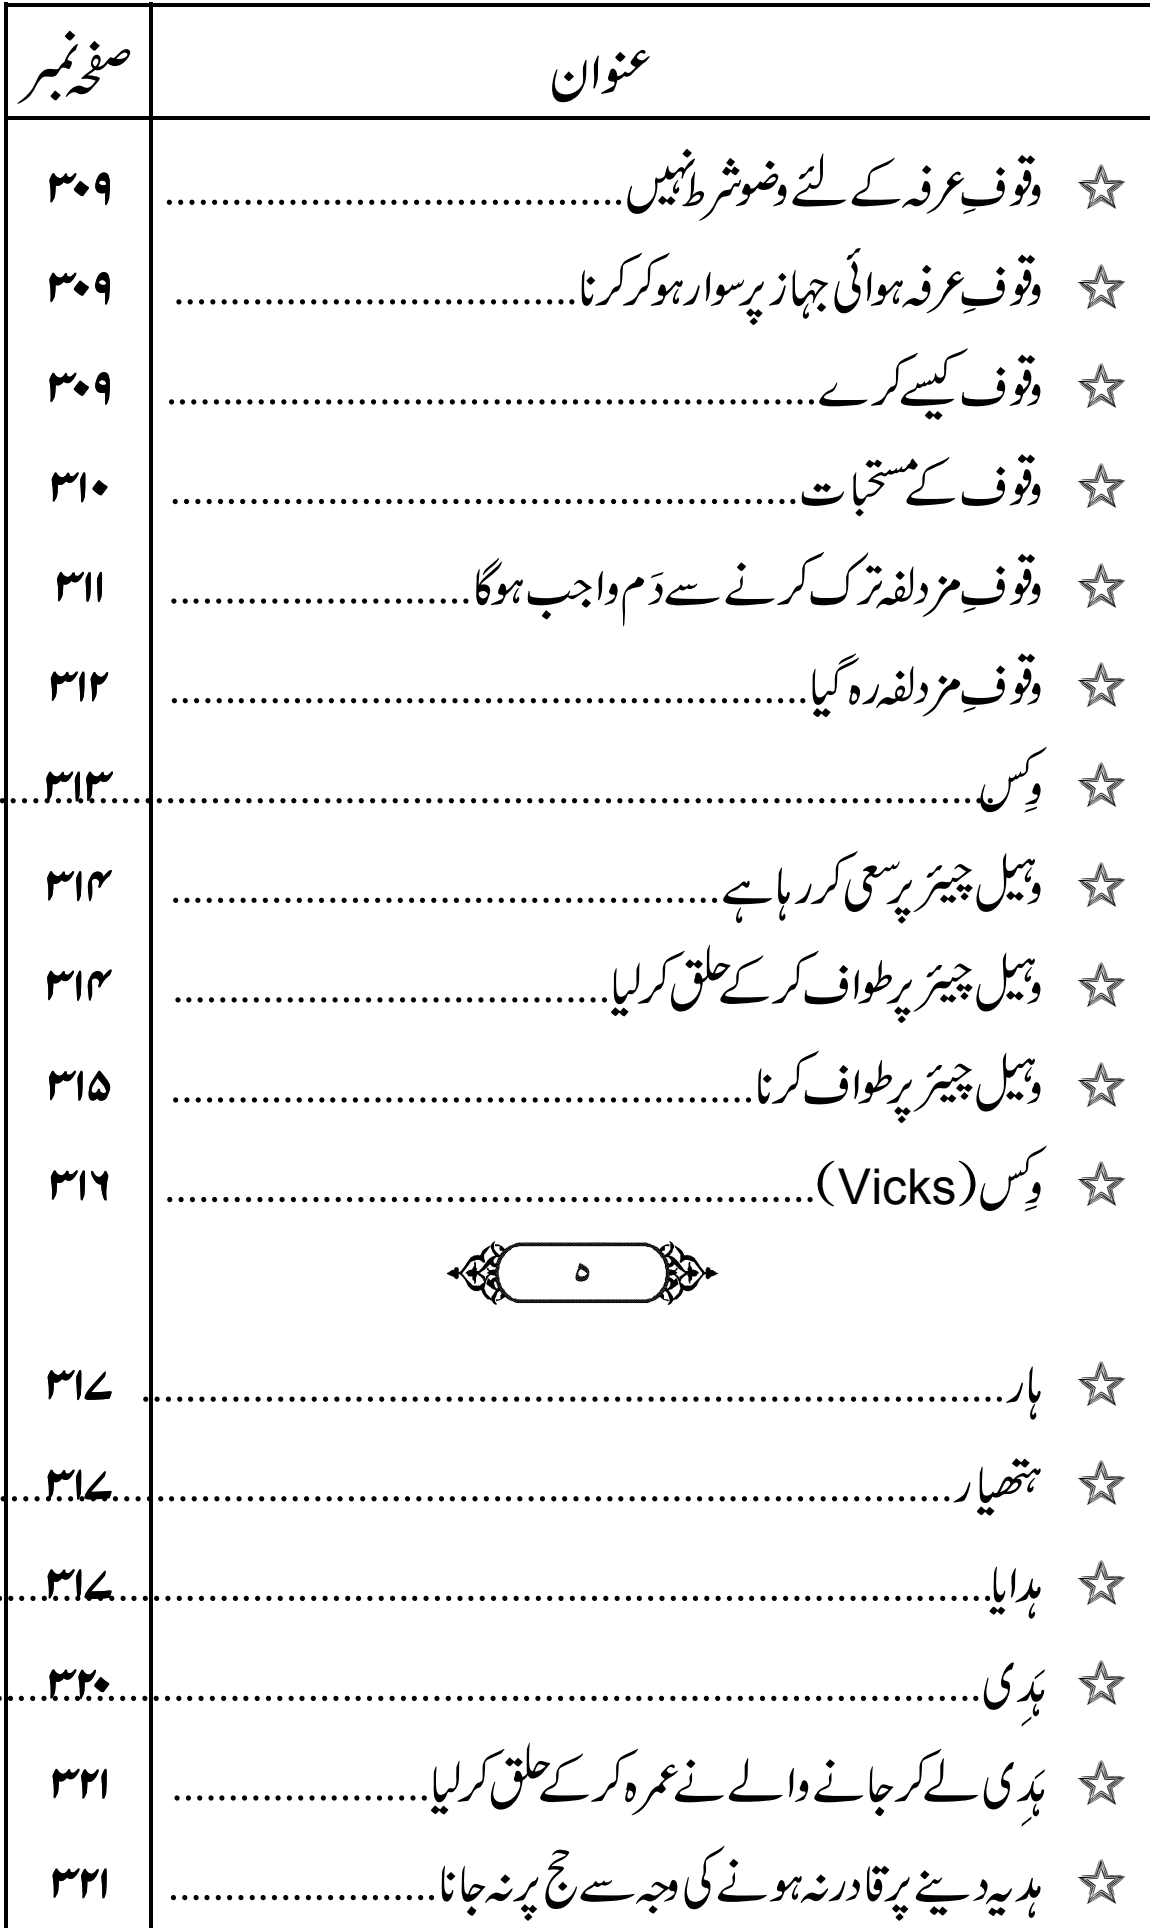 عنوان صفحہ نمبر
☆ وقوفِ عرفہ کے لئے وضو شرط نہیں ........................................ ۳۰۹
☆ وقوفِ عرفہ ہوائی جہاز پر سوار ہوکر کرنا .................................... ۳۰۹
☆ وقوف کیسے کرے .......................................................... ۳۰۹
☆ وقوف کے مستحبات ........................................................ ۳۱۰
☆ وقوفِ مزدلفہ ترک کرنے سے دَم واجب ہوگا ........................... ۳۱۱
☆ وقوفِ مزدلفہ رہ گیا ......................................................... ۳۱۲
☆ وِکس ........................................................................ ۳۱۳
☆ وہیل چیئر پر سعی کررہا ہے ................................................. ۳۱۴
☆ وہیل چیئر پر طواف کرکے حلق کرلیا ....................................... ۳۱۴
☆ وہیل چیئر پر طواف کرنا .................................................... ۳۱۵
☆ وِکس (Vicks) .......................................................... ۳۱۶
ہ
☆ ہار ........................................................................... ۳۱۷
☆ ہتھیار ....................................................................... ۳۱۷
☆ ہدایا ......................................................................... ۳۱۷
☆ ہَدِی ......................................................................... ۳۲۰
☆ ہَدِی لے کر جانے والے نے عمرہ کرکے حلق کرلیا ....................... ۳۲۱
☆ ہدیہ دینے پر قادر نہ ہونے کی وجہ سے حج پر نہ جانا ........................ ۳۲۱